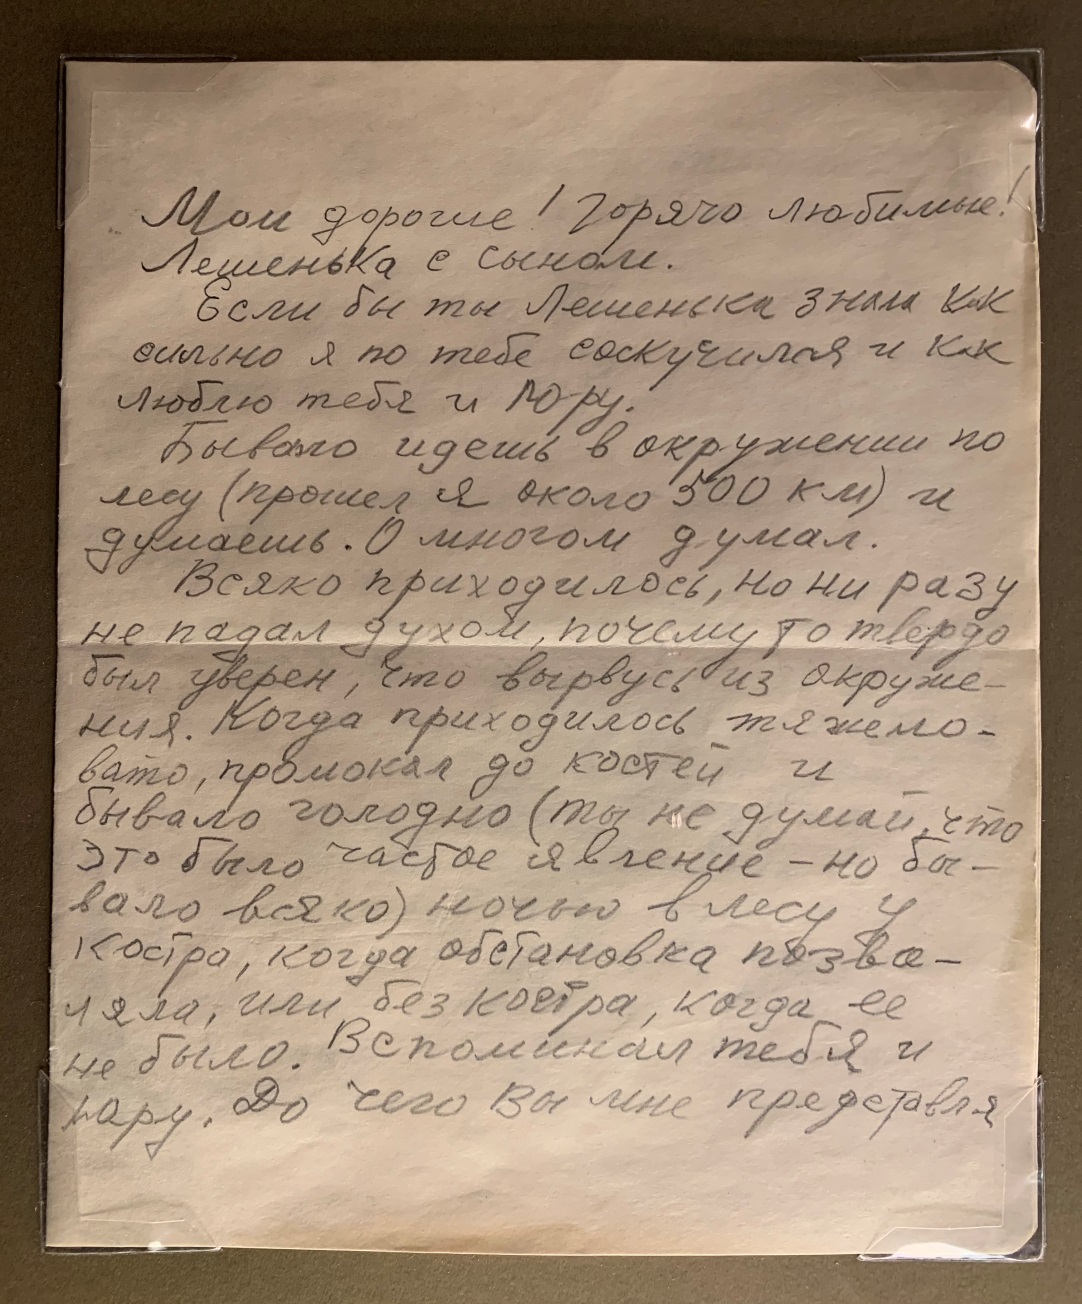 Мои дорогие! Горячо любимые!
Лешенька с сыном.
Если бы ты Лешенька знала как
сильно я по тебе соскучился и как
люблю тебя и Юру.
Бывало идешь в окружении по
лесу (прошел я около 500 км) и
думаешь. О многом думал.
Всяко приходилось, но ни разу
не падал духом, почему то твердо
был уверен, что вырвусь из окруже-
ния. Когда приходилось тяжело-
вато, промокал до костей и
бывало голодно (ты не думай, что
это было частое явление - но бы-
вало всяко) ночью в лесу у
костра, когда обстановка позво-
ляла, или без костра, когда ее
не было. Вспоминал тебя и
До чего Вы мне представля